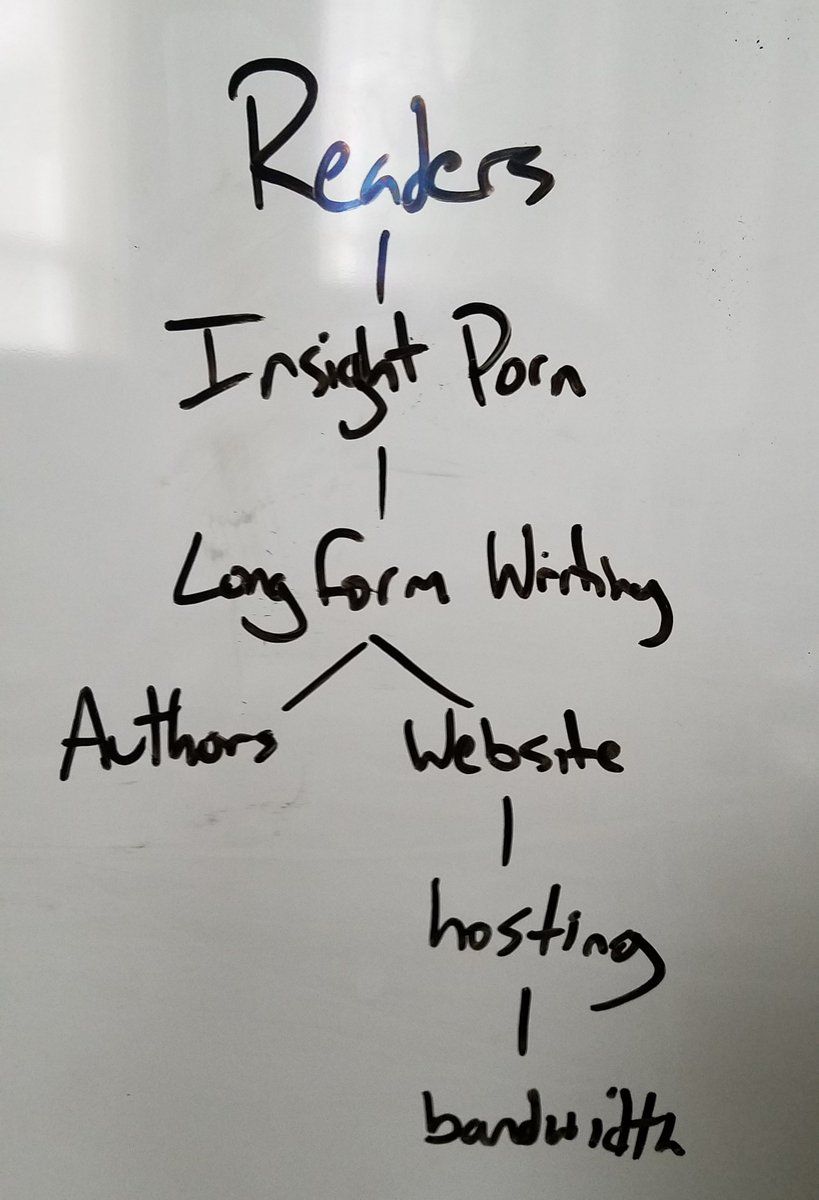 Readers
Insight Porn
Long Form Writing
Authors Website
hosting
bandwidth